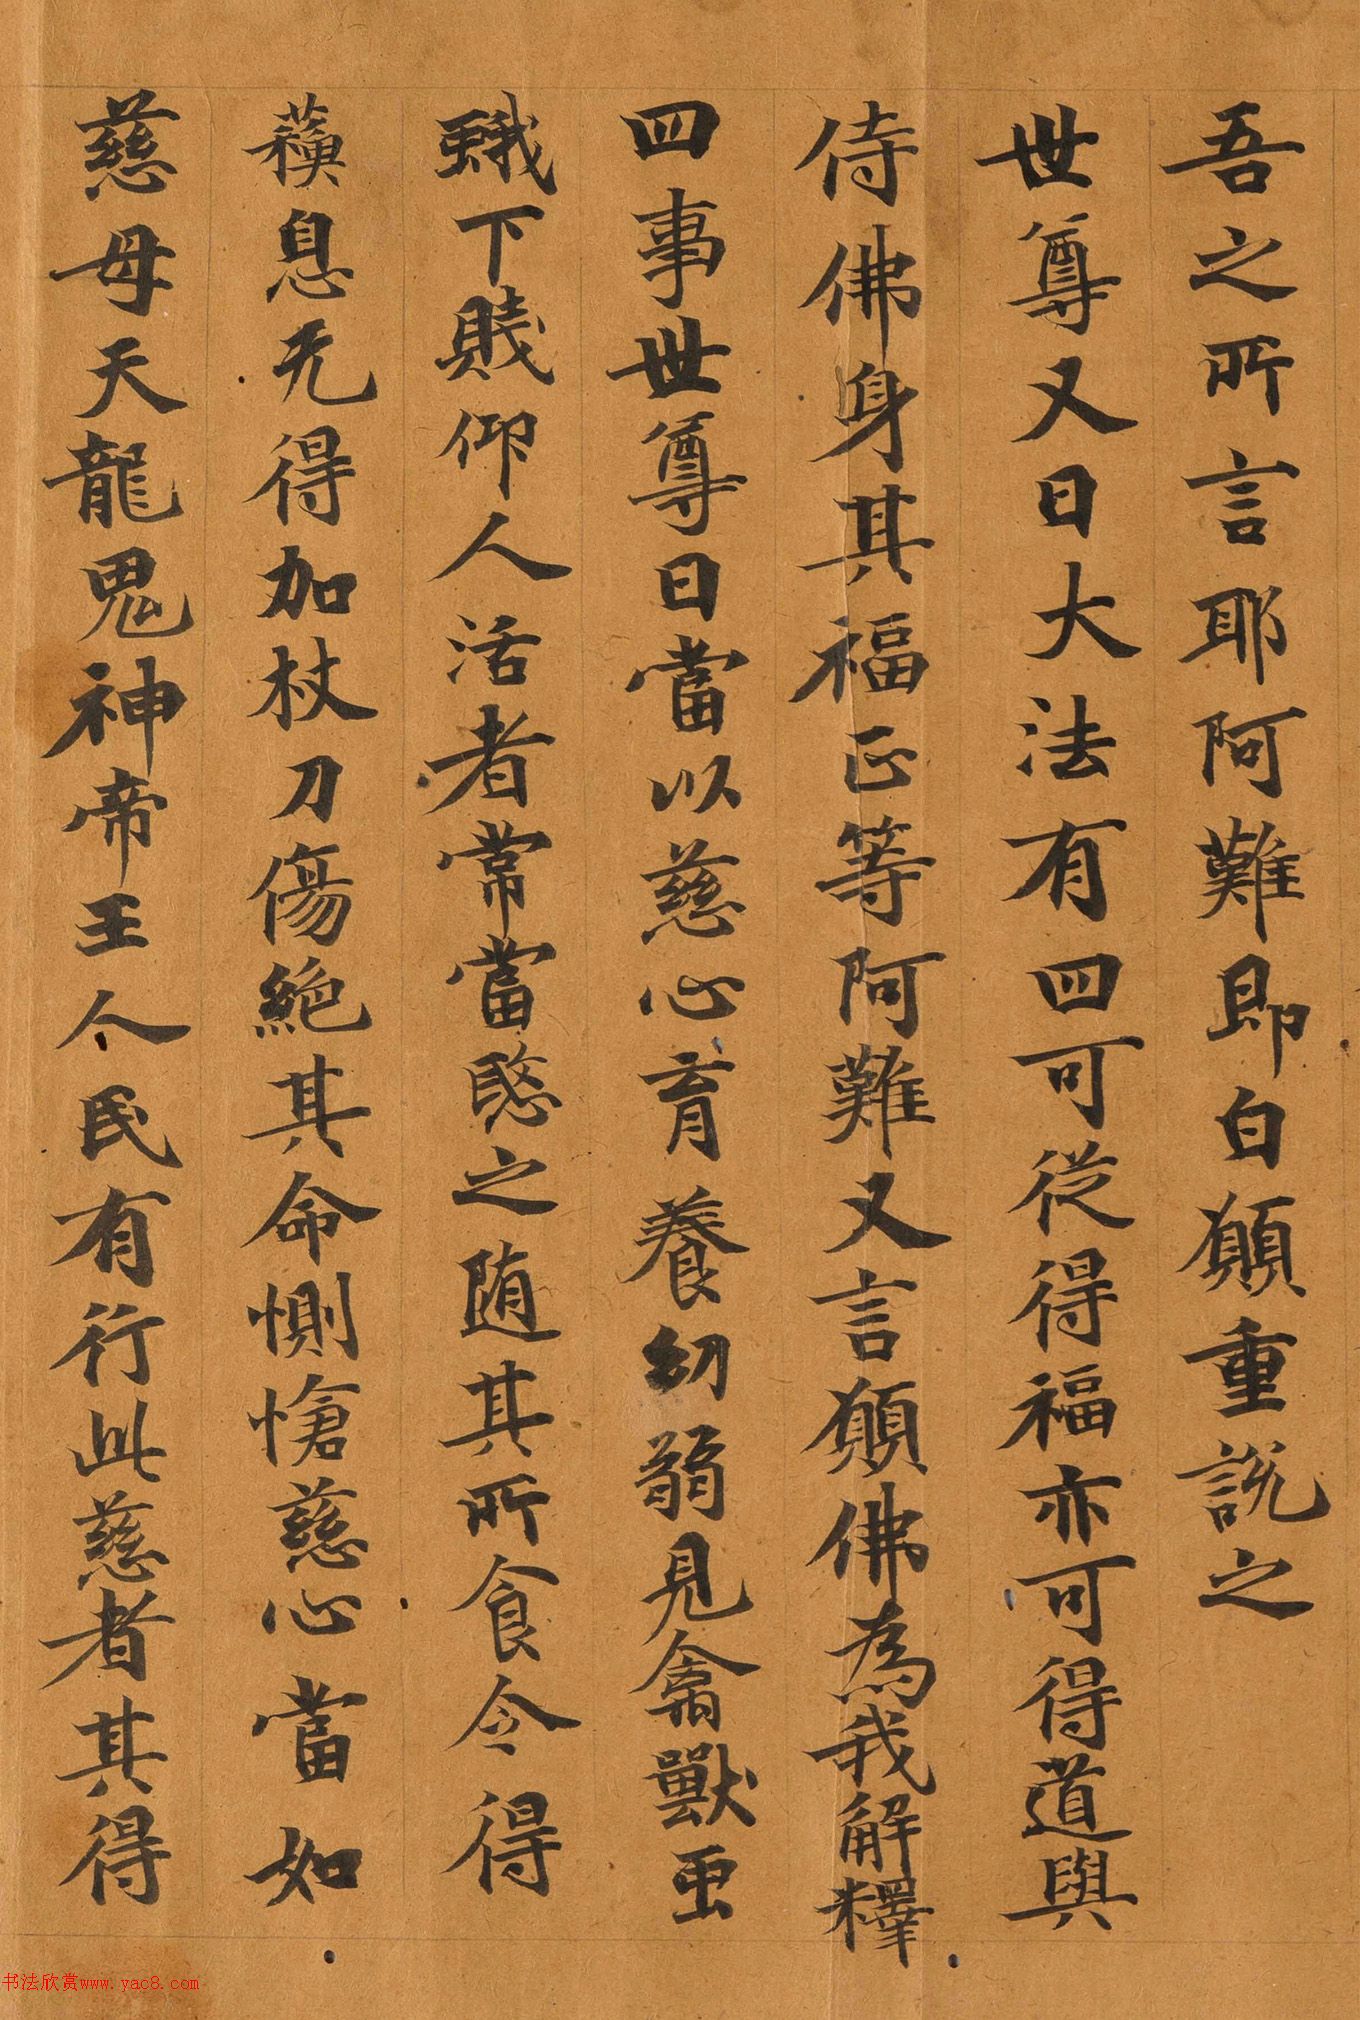 吾之所言耶阿難即白願重說之
世尊又曰大法有四可從得福亦可得道與
侍佛身其福正等阿難又言願佛為我解釋
四事世尊曰當以慈心育養幼弱見禽獸虫
蛾下賤仰人活者常當愍之随其所食令得
蘓息无得加杖刀傷絕其命惻愴慈心當如
慈母天龍鬼神帝王人民有行此慈者其得
书法欣赏www.yac8.com